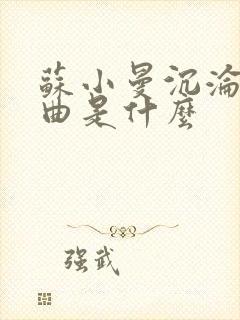 蘇小曼沉淪
曲是什麼
强武